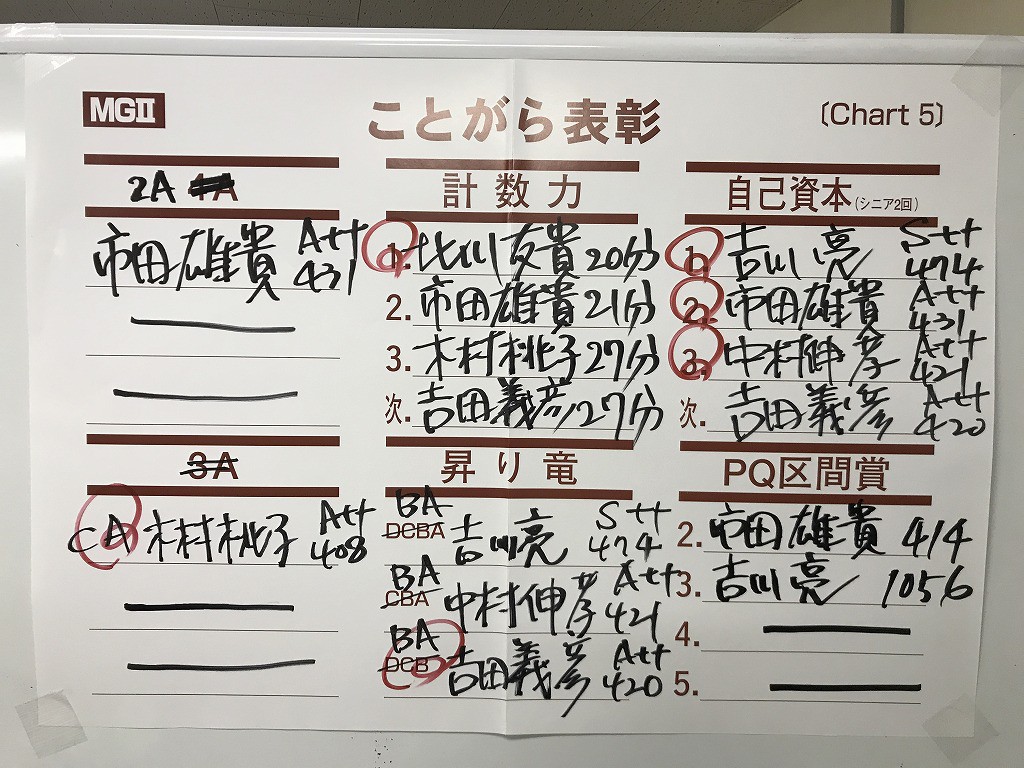 MGⅡ
ことがら表彰
〔Chart 5〕
2A 4A
市田雄貴 A++ 431
計数力
1. 比川友貴 20分
2. 市田雄貴 21分
3. 木村桃子 27分
次. 吉田義彦 27分
自己資本(シニア2回)
1. 吉川亮 S++ 474
2. 市田雄貴 A++ 431
3. 中村伸 A++ 421
次. 吉田義彦 A++ 420
3A
CA 木村桃子 A++ 408
昇り竜
BA
DCBA 吉川亮 S++ 474
BA
CBA 中村伸 A++ 421
BA
DCB 吉田義彦 A++ 420
PQ区間賞
2. 市田雄貴 414
3. 吉川亮 1056
4.
5.